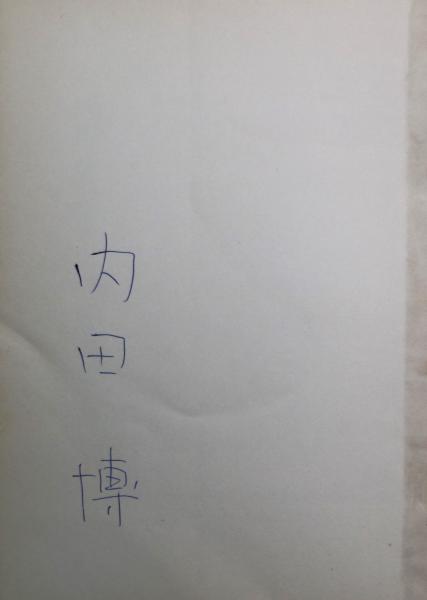 内田博